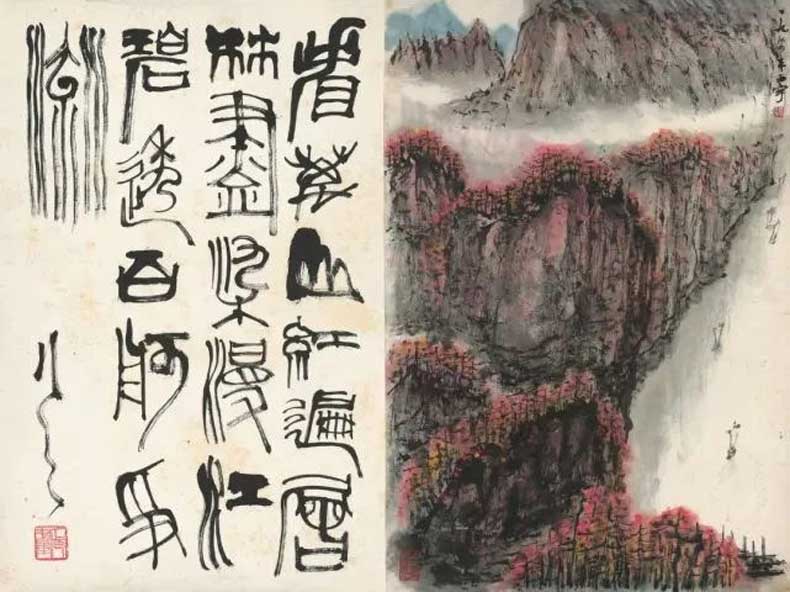 看萬山紅遍層
林盡染漫江
碧透百舸爭
流